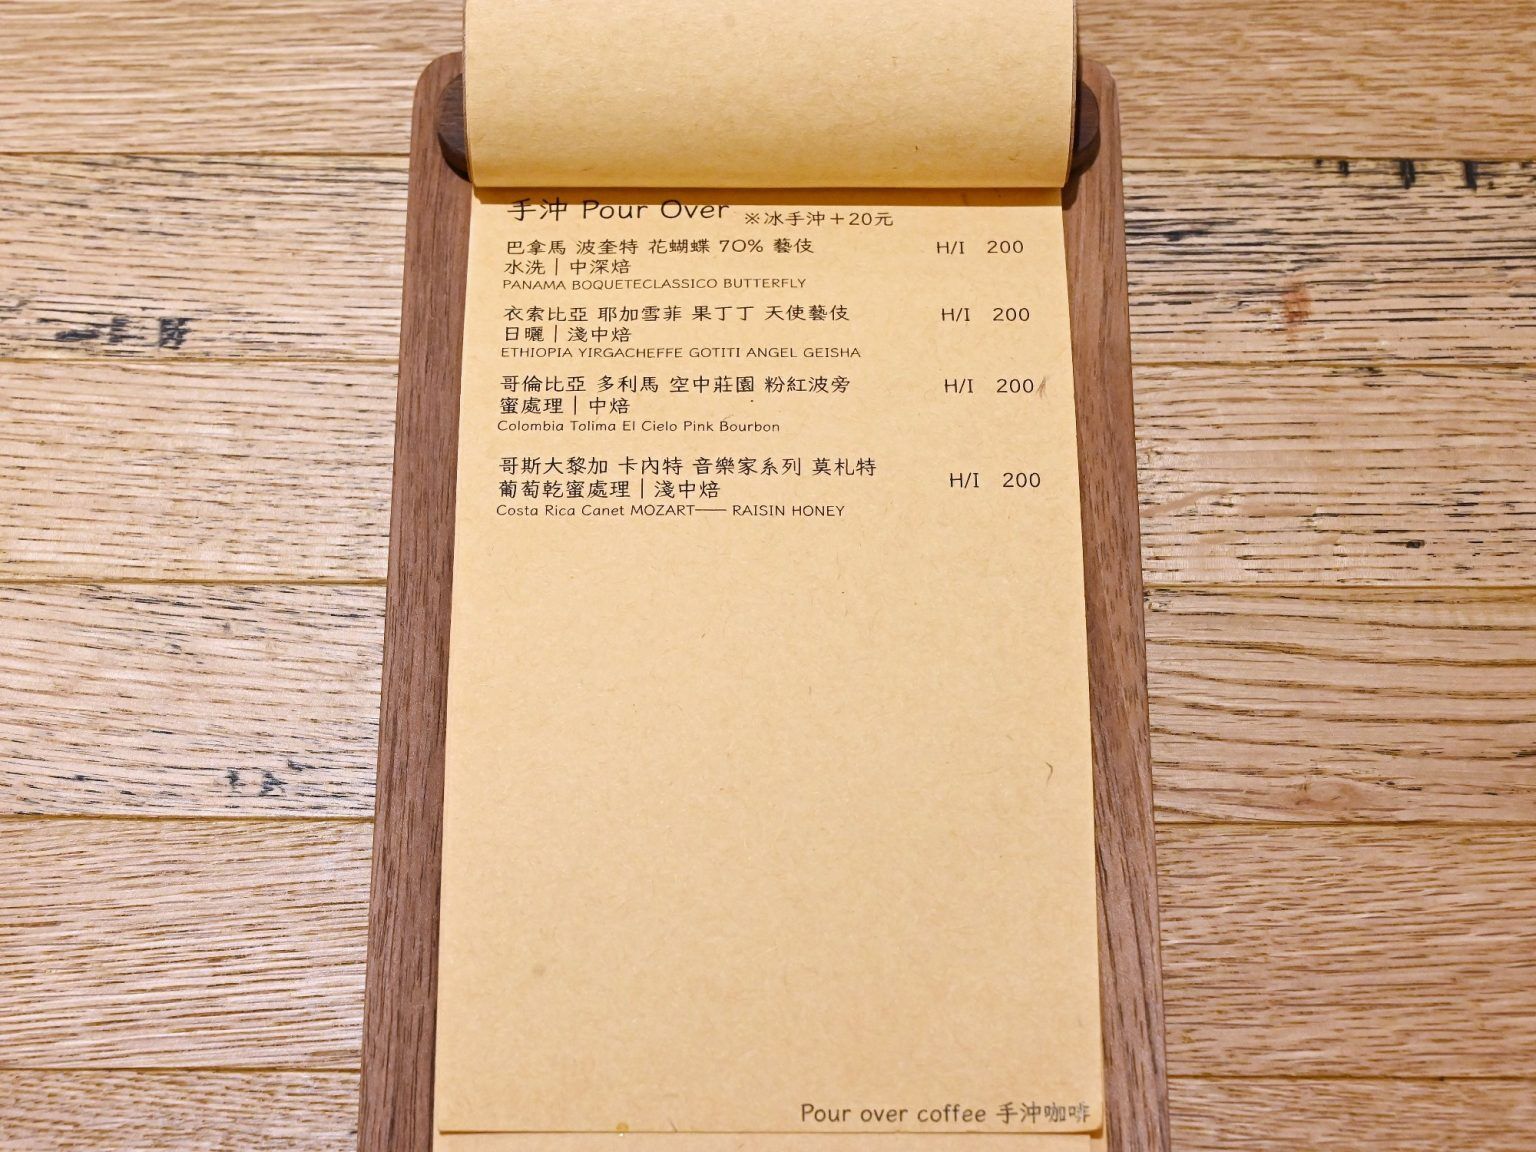 手沖 Pour Over ※冰手沖+20元
巴拿馬 波奎特 花蝴蝶 70% 藝伎 H/I 200
水洗 | 中深焙
PANAMA BOQUETECLASSICO BUTTERFLY
衣索比亞 耶加雪菲 果丁丁 天使藝伎 H/I 200
日曬 | 淺中焙
ETHIOPIA YIRGACHEFFE GOTITI ANGEL GEISHA
哥倫比亞 多利馬 空中莊園 粉紅波旁 H/I 200
蜜處理 | 中焙
Colombia Tolima El Cielo Pink Bourbon
哥斯大黎加 卡內特 音樂家系列 莫札特 H/I 200
葡萄乾蜜處理 | 淺中焙
Costa Rica Canet MOZART—— RAISIN HONEY
Pour over coffee 手沖咖啡